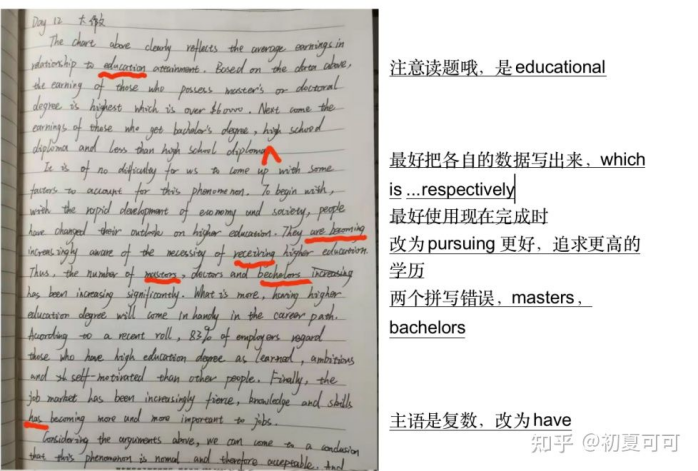 Day 12 大作文
The chart above clearly reflects the average earnings in
relationship to education attainment. Based on the data above,
the earning of those who possess master's or doctoral
degree is highest which is over $60000. Next come the
earnings of those who get bachelor's degree, high school
diploma and less than high school diploma.
It is of no difficulty for us to come up with some
factors to account for this phenomenon. To begin with,
with the rapid development of economy and society, people
have changed their outlook on higher education. They are becoming
increasingly aware of the necessity of receiving higher education.
Thus, the number of masters, doctors and bechelors increasing
has been increasing significantly. What is more, having higher
education degree will come in handy in the career path.
According to a recent roll, 83% of employers regard
those who have high education degree as learned, ambitions
and self-motivated than other people. Finally, the
job market has been increasingly fierce, knowledge and skills
has becoming more and more important to jobs.
Considering the arguments above, we can come to a conclusion
that this phenomenon is normal and therefore acceptable. And
注意读题哦，是educational
最好把各自的数据写出来，which
is ...respectively
最好使用现在完成时
改为pursuing 更好，追求更高的
学历
两个拼写错误，masters，
bachelors
主语是复数，改为have
知乎 @初夏可可